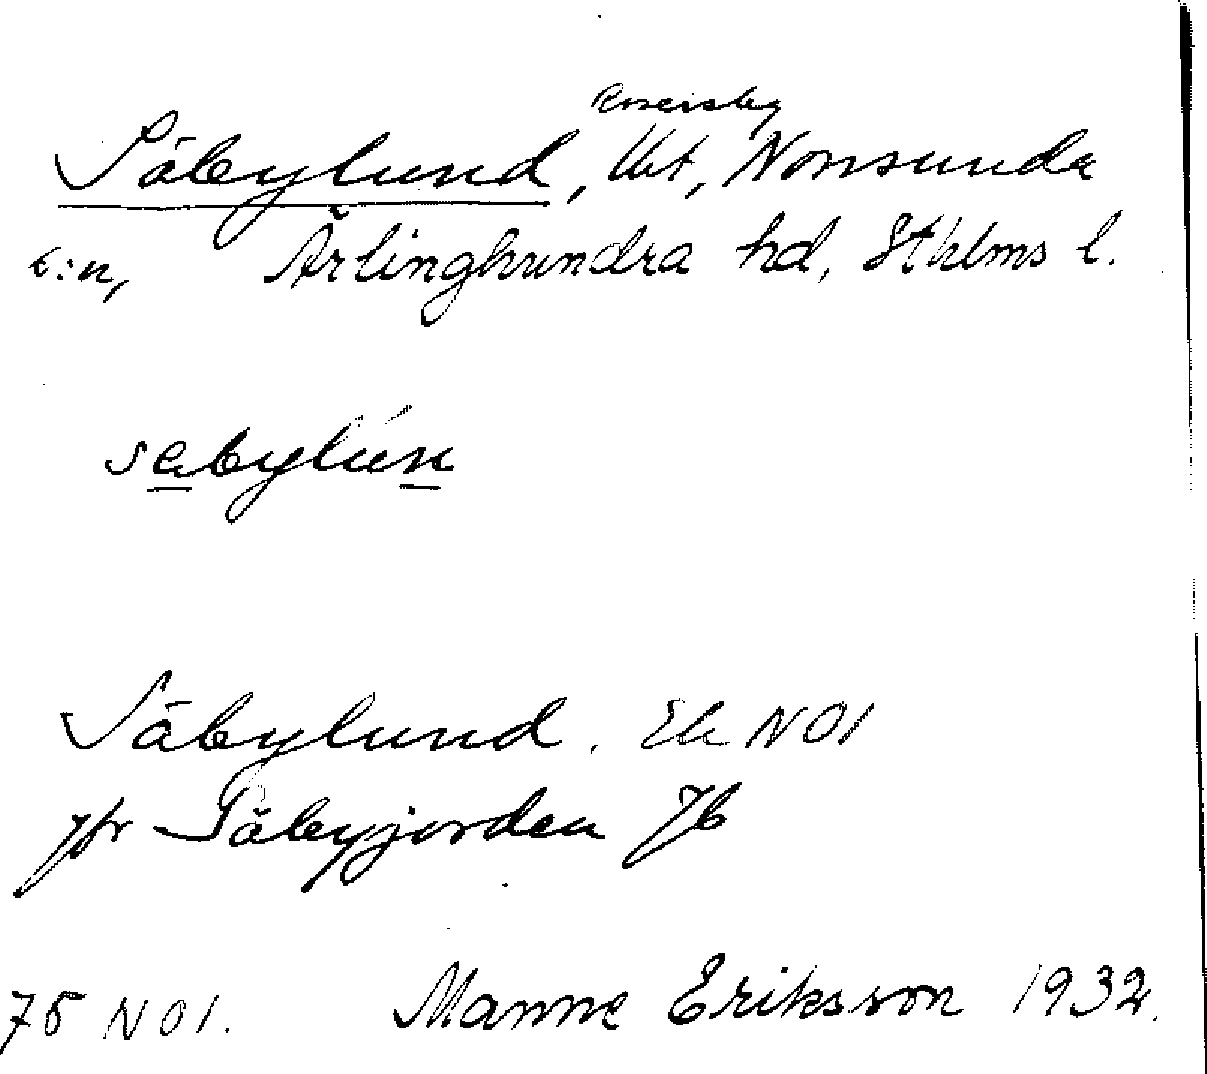 Säbylund, Ut, Norrsunda
s:n, Ärlinghundra hd, Sthlms l.
säbylún
Säbylund. Ek NO1
jfr Säbyjorden Jb
75 NO1. Manne Eriksson 1932.